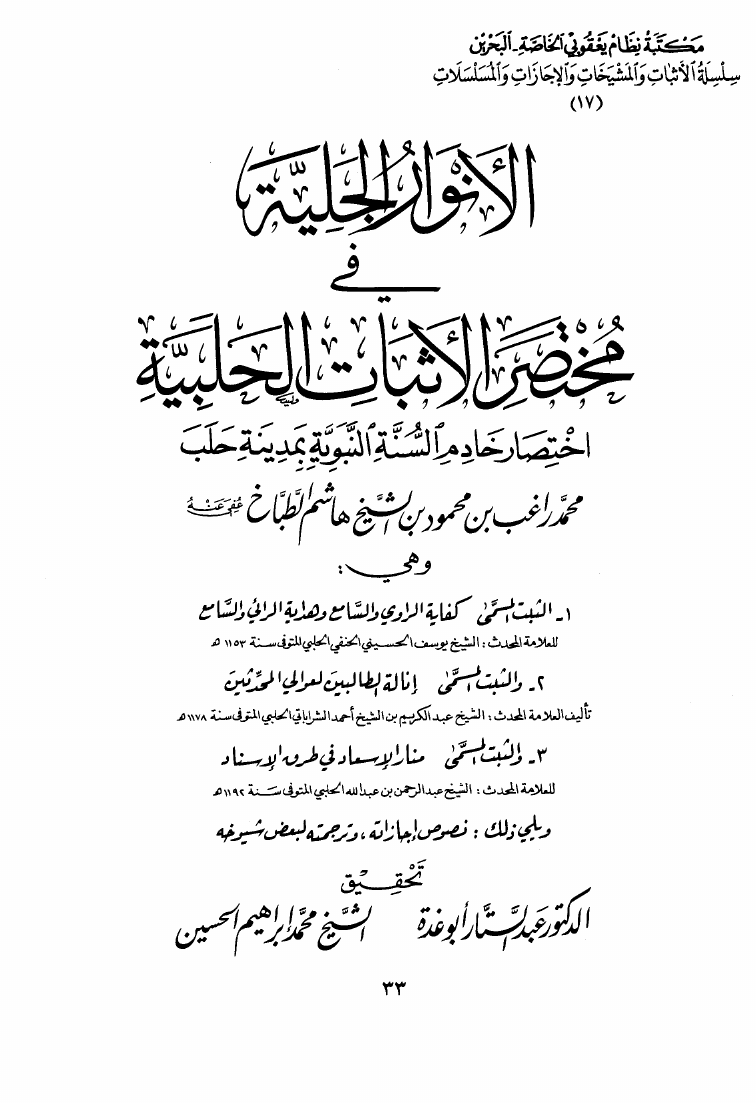 مَكتَبَةُ نِظَامْ يَعْقُوبِيْ الخَاصَّةِ - البَحْرَيْن
سِلْسِلَةُ الأَثبَاتِ وَالمَشْيَخَاتِ وَالإجَازَاتِ وَالمُسَلْسَلَاتِ
(١٧)
الأَنْوَارُ الجَلِيَّة
في
مُخْتَصَرِ الأَثبَاتِ الحَلَبِيَّة
اخْتِصَار خَادِمِ السُّنَّةِ النَّبَوِيَّةِ بِمَدِينَةِ حَلَبَ
محمَّد راغب بن محمود بن الشَّيخ هاشم الطَّبَّاخ عُفِيَ عَنهُ
وهي :
١- الثبت المسمَّى كفاية الراوي والسَّامع وهداية الرائي والسَّامع
للعلامة المحدث : الشيخ يوسف الحسيني الحنفي الحلبي المتوفى سنة ١١٥٣ هـ
٢- والثبت المسمَّى إنالة الطالبين لعوالي المحدِّثين
تأليف العلامة المحدث : الشيخ عبد الكريم بن الشيخ أحمد الشراباتي الحلبي المتوفى سنة ١١٧٨ هـ
٣- والثبت المسمَّى منار الإسعاد في طرق الإسناد
للعلامة المحدث : الشيخ عبد الرحمن بن عبد الله الحلبي المتوفى سنة ١١٩٢ هـ
ويلي ذلك : نصوص إجازاته ، وترجمته لبعض شيوخه
تَحْقِيق
الدكتور عبد السَّتَّار أبو غدة الشَّيخ محمَّد إبراهيم الحسين
٣٣